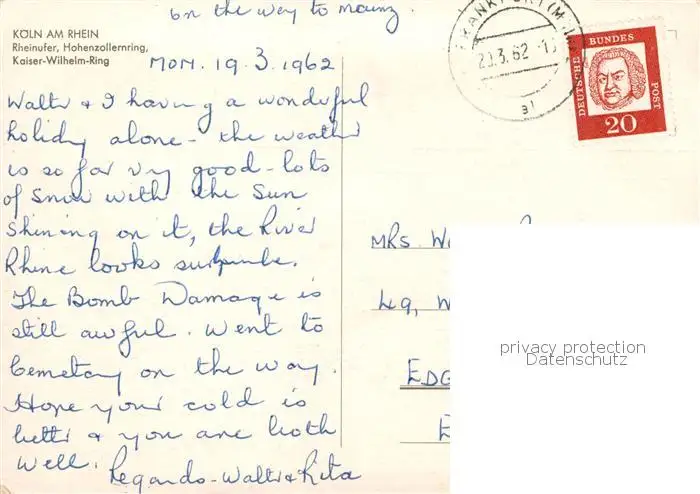 on the way to mainz.
KÖLN AM RHEIN
Rheinufer, Hohenzollernring,
Kaiser-Wilhelm-Ring
MON. 19.3.1962
Walter & I having a wonderful
holiday alone - the weather
is so far very good - lots
of snow with the sun
shining on it, the River
Rhine looks
The Bomb Damage is
still awful. Went to
Cemetary on the way.
Hope your cold is
better & you are both
well. Regards - Walter & Rita
FRANKFURT (M
20.3.62
DEUTSCHE BUNDES POST
20
MRS W
49, W
EDG
E
privacy protection
Datenschutz